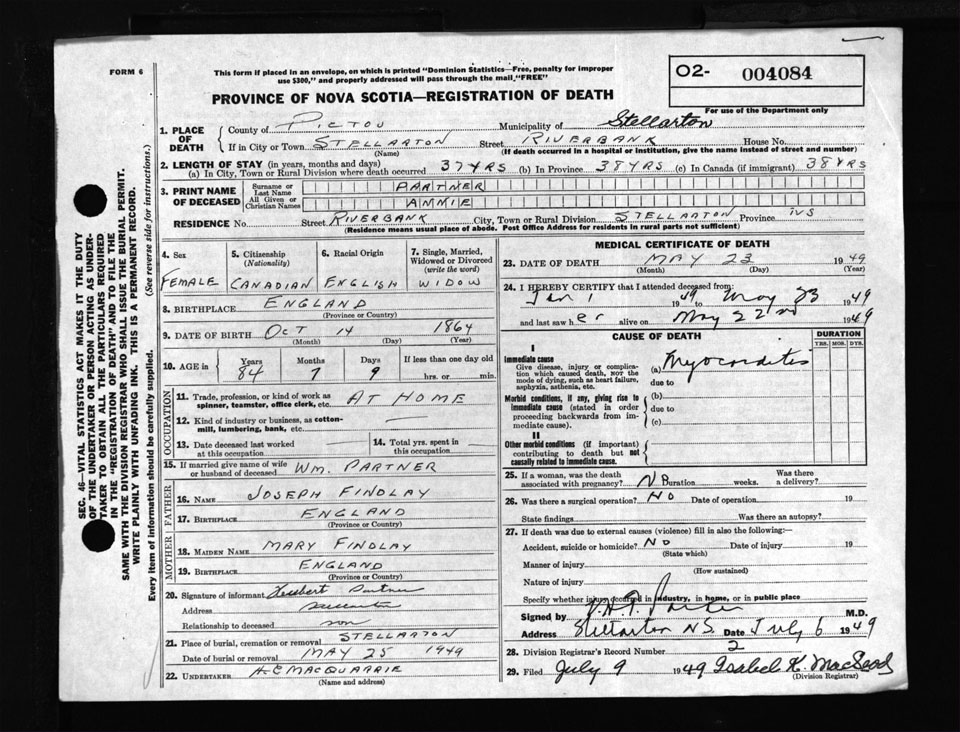 FORM 6
This form if placed in an envelope, on which is printed "Dominion Statistics—Free, penalty for improper
use $300," and properly addressed will pass through the mail "FREE"
O2- 004084
PROVINCE OF NOVA SCOTIA—REGISTRATION OF DEATH
For use of the Department only
1. PLACE OF DEATH
County of PICTOU Municipality of Stellarton
If in City or Town STELLARTON Street RIVERBANK House No.
(Name) (If death occurred in a hospital or institution, give the name instead of street and number)
2. LENGTH OF STAY (in years, months and days)
(a) In City, Town or Rural Division where death occurred 37 YRS (b) In Province 38 YRS (c) In Canada (if immigrant) 38 YRS
3. PRINT NAME OF DECEASED
Surname or Last Name PARTNER
All Given or Christian Names ANNIE
RESIDENCE No. Street RIVERBANK City, Town or Rural Division STELLARTON Province NS
(Residence means usual place of abode. Post Office Address for residents in rural parts not sufficient)
4. Sex
FEMALE
5. Citizenship
(Nationality)
CANADIAN
6. Racial Origin
ENGLISH
7. Single, Married,
Widowed or Divorced
(write the word)
WIDOW
8. BIRTHPLACE ENGLAND
(Province or Country)
9. DATE OF BIRTH OCT 14 1864
(Month) (Day) (Year)
10. AGE in
Years Months Days If less than one day old
84 7 9 hrs. or min.
OCCUPATION
11. Trade, profession, or kind of work as
spinner, teamster, office clerk, etc. AT HOME
12. Kind of industry or business, as cotton-
mill, lumbering, bank, etc.
13. Date deceased last worked
at this occupation
14. Total yrs. spent in
this occupation
15. If married give name of wife
or husband of deceased WM. PARTNER
FATHER
16. NAME JOSEPH FINDLAY
17. BIRTHPLACE ENGLAND
(Province or Country)
MOTHER
18. MAIDEN NAME MARY FINDLAY
19. BIRTHPLACE ENGLAND
(Province or Country)
20. Signature of informant Herbert Partner
Address Stellarton
Relationship to deceased son
21. Place of burial, cremation or removal STELLARTON
Date of burial or removal MAY 25 1949
22. UNDERTAKER H.C MACQUARRIE
(Name and address)
MEDICAL CERTIFICATE OF DEATH
23. DATE OF DEATH MAY 23 1949
(Month) (Day) (Year)
24. I HEREBY CERTIFY that I attended deceased from:
Jan 1 1949 to May 23 1949
and last saw her alive on May 22nd 1949
CAUSE OF DEATH DURATION
YRS. MOS. DYS.
I
Immediate cause
Give disease, injury or complica-
tion which caused death, NOT the
mode of dying, such as heart failure,
asphyxia, asthenia, etc.
(a) Myocarditis
due to
Morbid conditions, if any, giving rise to
immediate cause (stated in order
proceeding backwards from im-
mediate cause).
(b)
due to
(c)
II
Other morbid conditions (if important)
contributing to death but not
causally related to immediate cause.
25. If a woman, was the death
associated with pregnancy? No Duration weeks. Was there
a delivery?
26. Was there a surgical operation? NO Date of operation 19
State findings Was there an autopsy?
27. If death was due to external causes (violence) fill in also the following:—
Accident, suicide or homicide? NO Date of injury 19
(State which)
Manner of injury
(How sustained)
Nature of injury
Specify whether injury occurred in industry, in home, or in public place
Signed by M.D.
Address Stellarton NS. Date July 6 1949
28. Division Registrar's Record Number 2
29. Filed July 9 1949 Isabel K. MacLeod
(Division Registrar)
SEC. 46—VITAL STATISTICS ACT MAKES IT THE DUTY
OF THE UNDERTAKER OR PERSON ACTING AS UNDER-
TAKER TO OBTAIN ALL THE PARTICULARS REQUIRED
IN THE "REGISTRATION OF DEATH" AND TO FILE THE
SAME WITH THE DIVISION REGISTRAR WHO SHALL ISSUE THE BURIAL PERMIT.
WRITE PLAINLY WITH UNFADING INK. THIS IS A PERMANENT RECORD.
Every item of information should be carefully supplied. (See reverse side for instructions.)